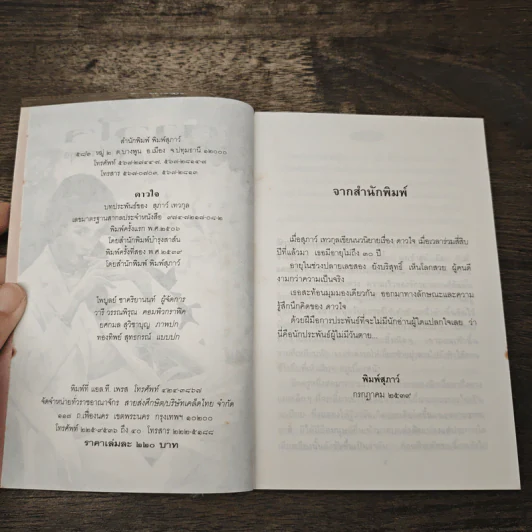 สำนักพิมพ์ พิมพ์สุภาว์
๕๘๒ หมู่ ๒ ต.บางพูน อ.เมือง จ.ปทุมธานี ๑๒๐๐๐
โทรศัพท์
โทรสาร ๕๖๗-๐๗๐๓,
ดาวใจ
บทประพันธ์ของ สุภาว์ เทวกุล
เลขมาตรฐานสากลประจำหนังสือ
พิมพ์ครั้งแรก พ.ศ.๒๕๐๖
โดยสำนักพิมพ์บำรุงสาส์น
พิมพ์ครั้งที่สอง พ.ศ.๒๕๓๙
โดยสำนักพิมพ์ พิมพ์สุภาว์
ไพบูลย์ ชาคริยานนท์ ผู้จัดการ
วารี วรรณพิรุณ คอมพิวกราฟิค
ยศกมล สุวิชาบุญ ภาพปก
ทองทิพย์ สุทธกรณ์ แบบปก
พิมพ์ที่ แอล.ที. เพรส โทรศัพท์ ๔๒๔-๓๘๖๗
จัดจำหน่ายทั่วราชอาณาจักร สายส่งศึกษิต/บริษัทเคล็ดไทย จำกัด
๑๑๗ ถ.เฟื่องนคร เขตพระนคร กรุงเทพฯ ๑๐๒๐๐
โทรศัพท์ ๒๒๕-๙๕๓๖ ถึง ๔๐ โทรสาร ๒๒๒-๕๑๘๘
ราคาเล่มละ ๒๒๐ บาท
จากสำนักพิมพ์
เมื่อสุภาว์ เทวกุลเขียนนวนิยายเรื่อง ดาวใจ เมื่อเวลาร่วมสี่สิบ
ปีที่แล้วมา เธอมีอายุไม่ถึง ๓๐ ปี
อายุในช่วงปลายเลขสอง ยังบริสุทธิ์ เห็นโลกสวย ผู้คนดี
งามกว่าความเป็นจริง
เธอสะท้อนมุมมองเดียวกัน ออกมาทางลักษณะและความ
รู้สึกนึกคิดของ ดาวใจ
ด้วยฝีมือการประพันธ์ที่จะไม่มีนักอ่านผู้ใดแปลกใจเลย ว่า
นี่คือนักประพันธ์ผู้ไม่มีวันตาย...
พิมพ์สุภาว์
กรกฎาคม ๒๕๓๙